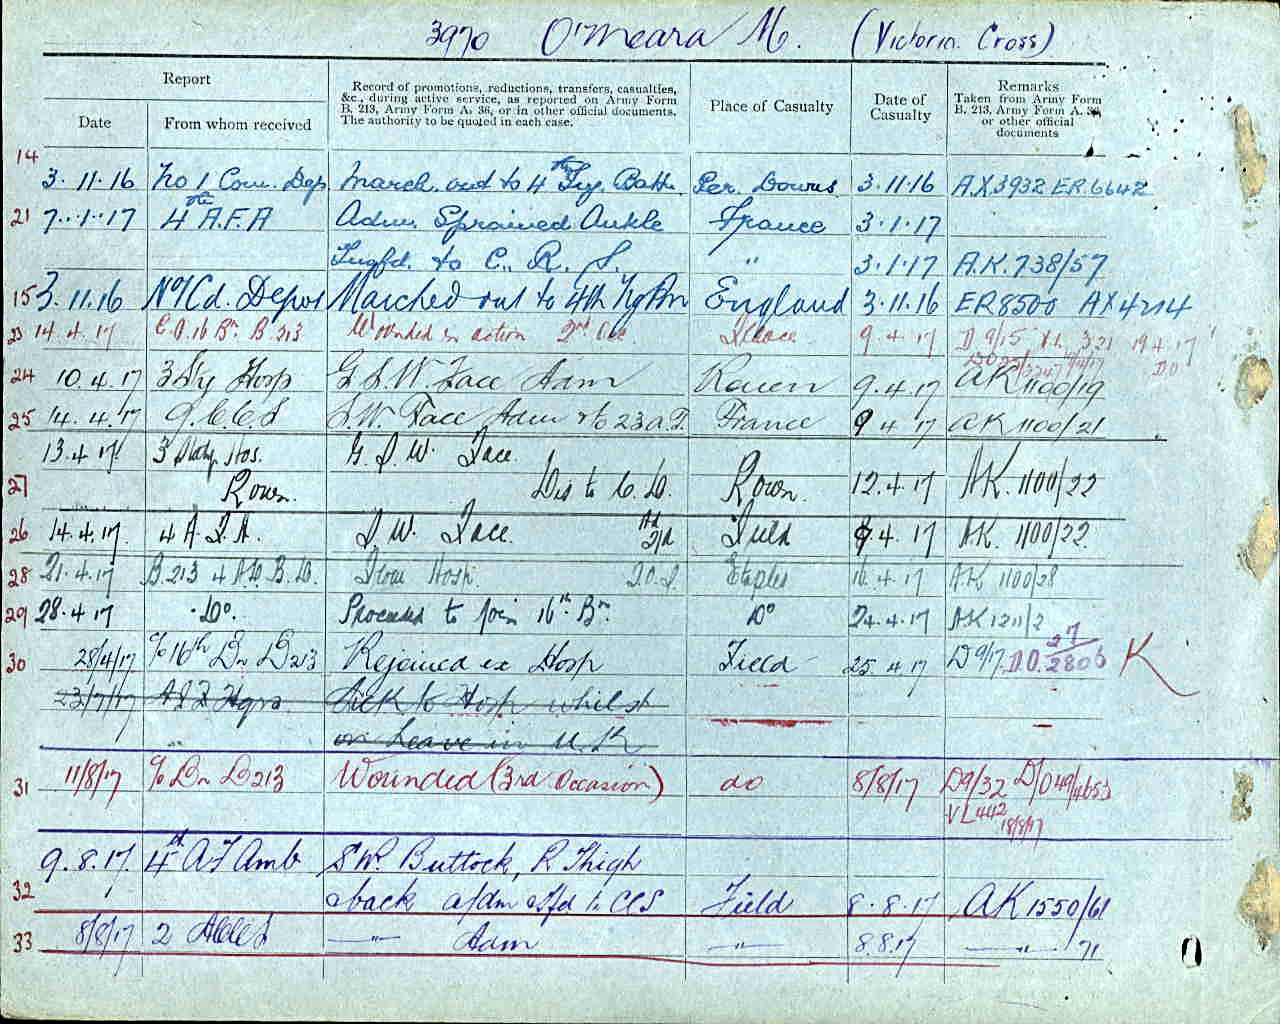 3970 O'Meara M. (Victoria Cross)
Report
Record of promotions, reductions, transfers, casualties, &c., during active service, as reported on Army Form B. 213, Army Form A. 36, or in other official documents. The authority to be quoted in each case.
Place of Casualty
Date of Casualty
Remarks
Taken from Army Form B. 213, Army Form A. 36, or other official documents
Date
From whom received
14 3.11.16 No 1 Com. Dep March out to 4th Tng Batt. Per. Downs 3.11.16 A.X3932 ER6642
21 7.1.17 4th A.F.A Adm. Sprained Ankle France 3.1.17
Tngfd. to C. R. S. " 3.1.17 A.K.738/57
15 3.11.16 No 1 Cd. Depot Marched out to 4th Tg Bn England 3.11.16 ER8500 AX4214
23 14.4.17 C.O. 16 Bn B.213 Wounded in action 2nd Occ 9.4.17 D 9/15 V.L. 321 19.4.17
24 10.4.17 3 Sty Hosp G.S.W. Face Adm Rouen 9.4.17 AK 1100/19
25 14.4.17 S.W. Face Adm France 9 4 17 AK 1100/21
13.4.17 3 Staty Hos. G.S.W. Face.
27 Rouen. Dis to C.D. Rouen. 12.4.17 AK. 1100/22
26 14.4.17. 4 A.F.A. S.W. Face. Ad Field 9.4.17 A.K. 1100/22
28 21.4.17 B.213 4 A.D.B.D. From Hosp. Etaples 16.4.17 AK 1100/28
29 28.4.17 Do. Proceeded to join 16th Bn Do 24.4.17 AK 1211/2
30 28/4/17 C/o 16th Bn B213 Rejoined ex Hosp Field 25.4.17 D 9/17 D.O. 27/2806 K
23/7/17 A.I.F. Hqrs Sick to Hosp whilst
on Leave in U.K
31 11/8/17 C/o Bn B213 Wounded (3rd Occasion) do 8/8/17 D9/32 D/O49/4653
VL442 18/8/17
9.8.17. 4th A F Amb SW. Buttock, R Thigh
32 & back a/dm & tfd to CCS Field 8.8.17 AK 1550/61
33 8/8/17 2 ACCS —"— Adm —"— 8.8.17 —"— 71